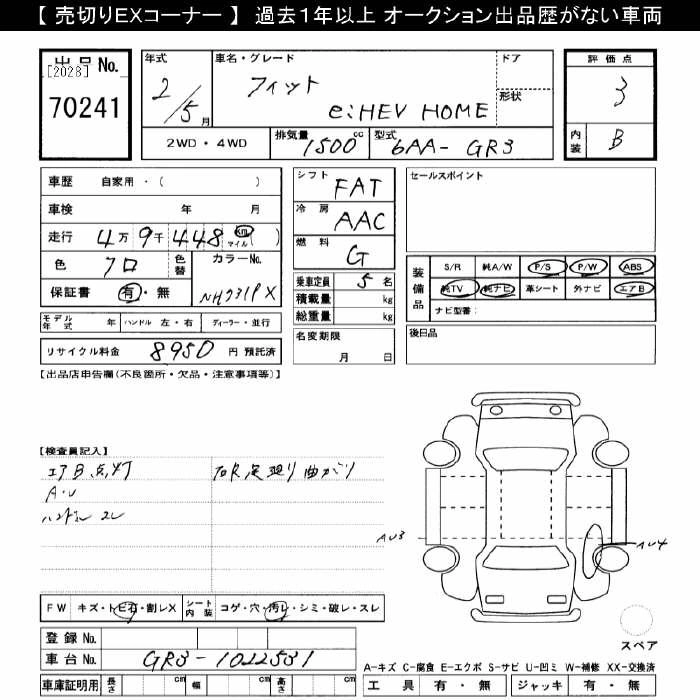 【 売切りEXコーナー 】 過去１年以上 オークション出品歴がない車両
出品 No.
[2028]
70241
年式
2/5月
車名・グレード
フィット
e:HEV HOME
ドア
形状
評価点
3
内装
B
2WD・4WD
排気量
1500cc
型式
6AA-GR3
車歴 自家用・( )
車検 年 月
走行 4万9千448 km マイル ( )
色 クロ
色替
カラーNo.
NH731PX
保証書 有・無
モデル年式 年 ハンドル 左・右 ディーラー・並行
リサイクル料金 8950 円 預託済
シフト
FAT
冷房
AAC
燃料
G
乗車定員 5 名
積載量 kg
総重量 kg
名変期限
月 日
セールスポイント
装備品
S/R 純A/W P/S P/W ABS
純TV 純ナビ 革シート 外ナビ エアB
ナビ型番:
後日品
【出品店申告欄(不良箇所・欠品・注意事項等)】
【検査員記入】
エアB点灯
右R足廻り曲がり
A・U
ハンドルスレ
AU3
AU4
FW キズ・トビ石・割レX
シート内装 コゲ・穴・汚レ・シミ・破レ・スレ
登録 No.
車台 No. GR3-1022531
車庫証明用 長さ cm 幅 cm 高さ cm
スペア
A-キズ C-腐食 E-エクボ S-サビ U-凹ミ W-補修 XX-交換済
工具 有・無 ジャッキ 有・無